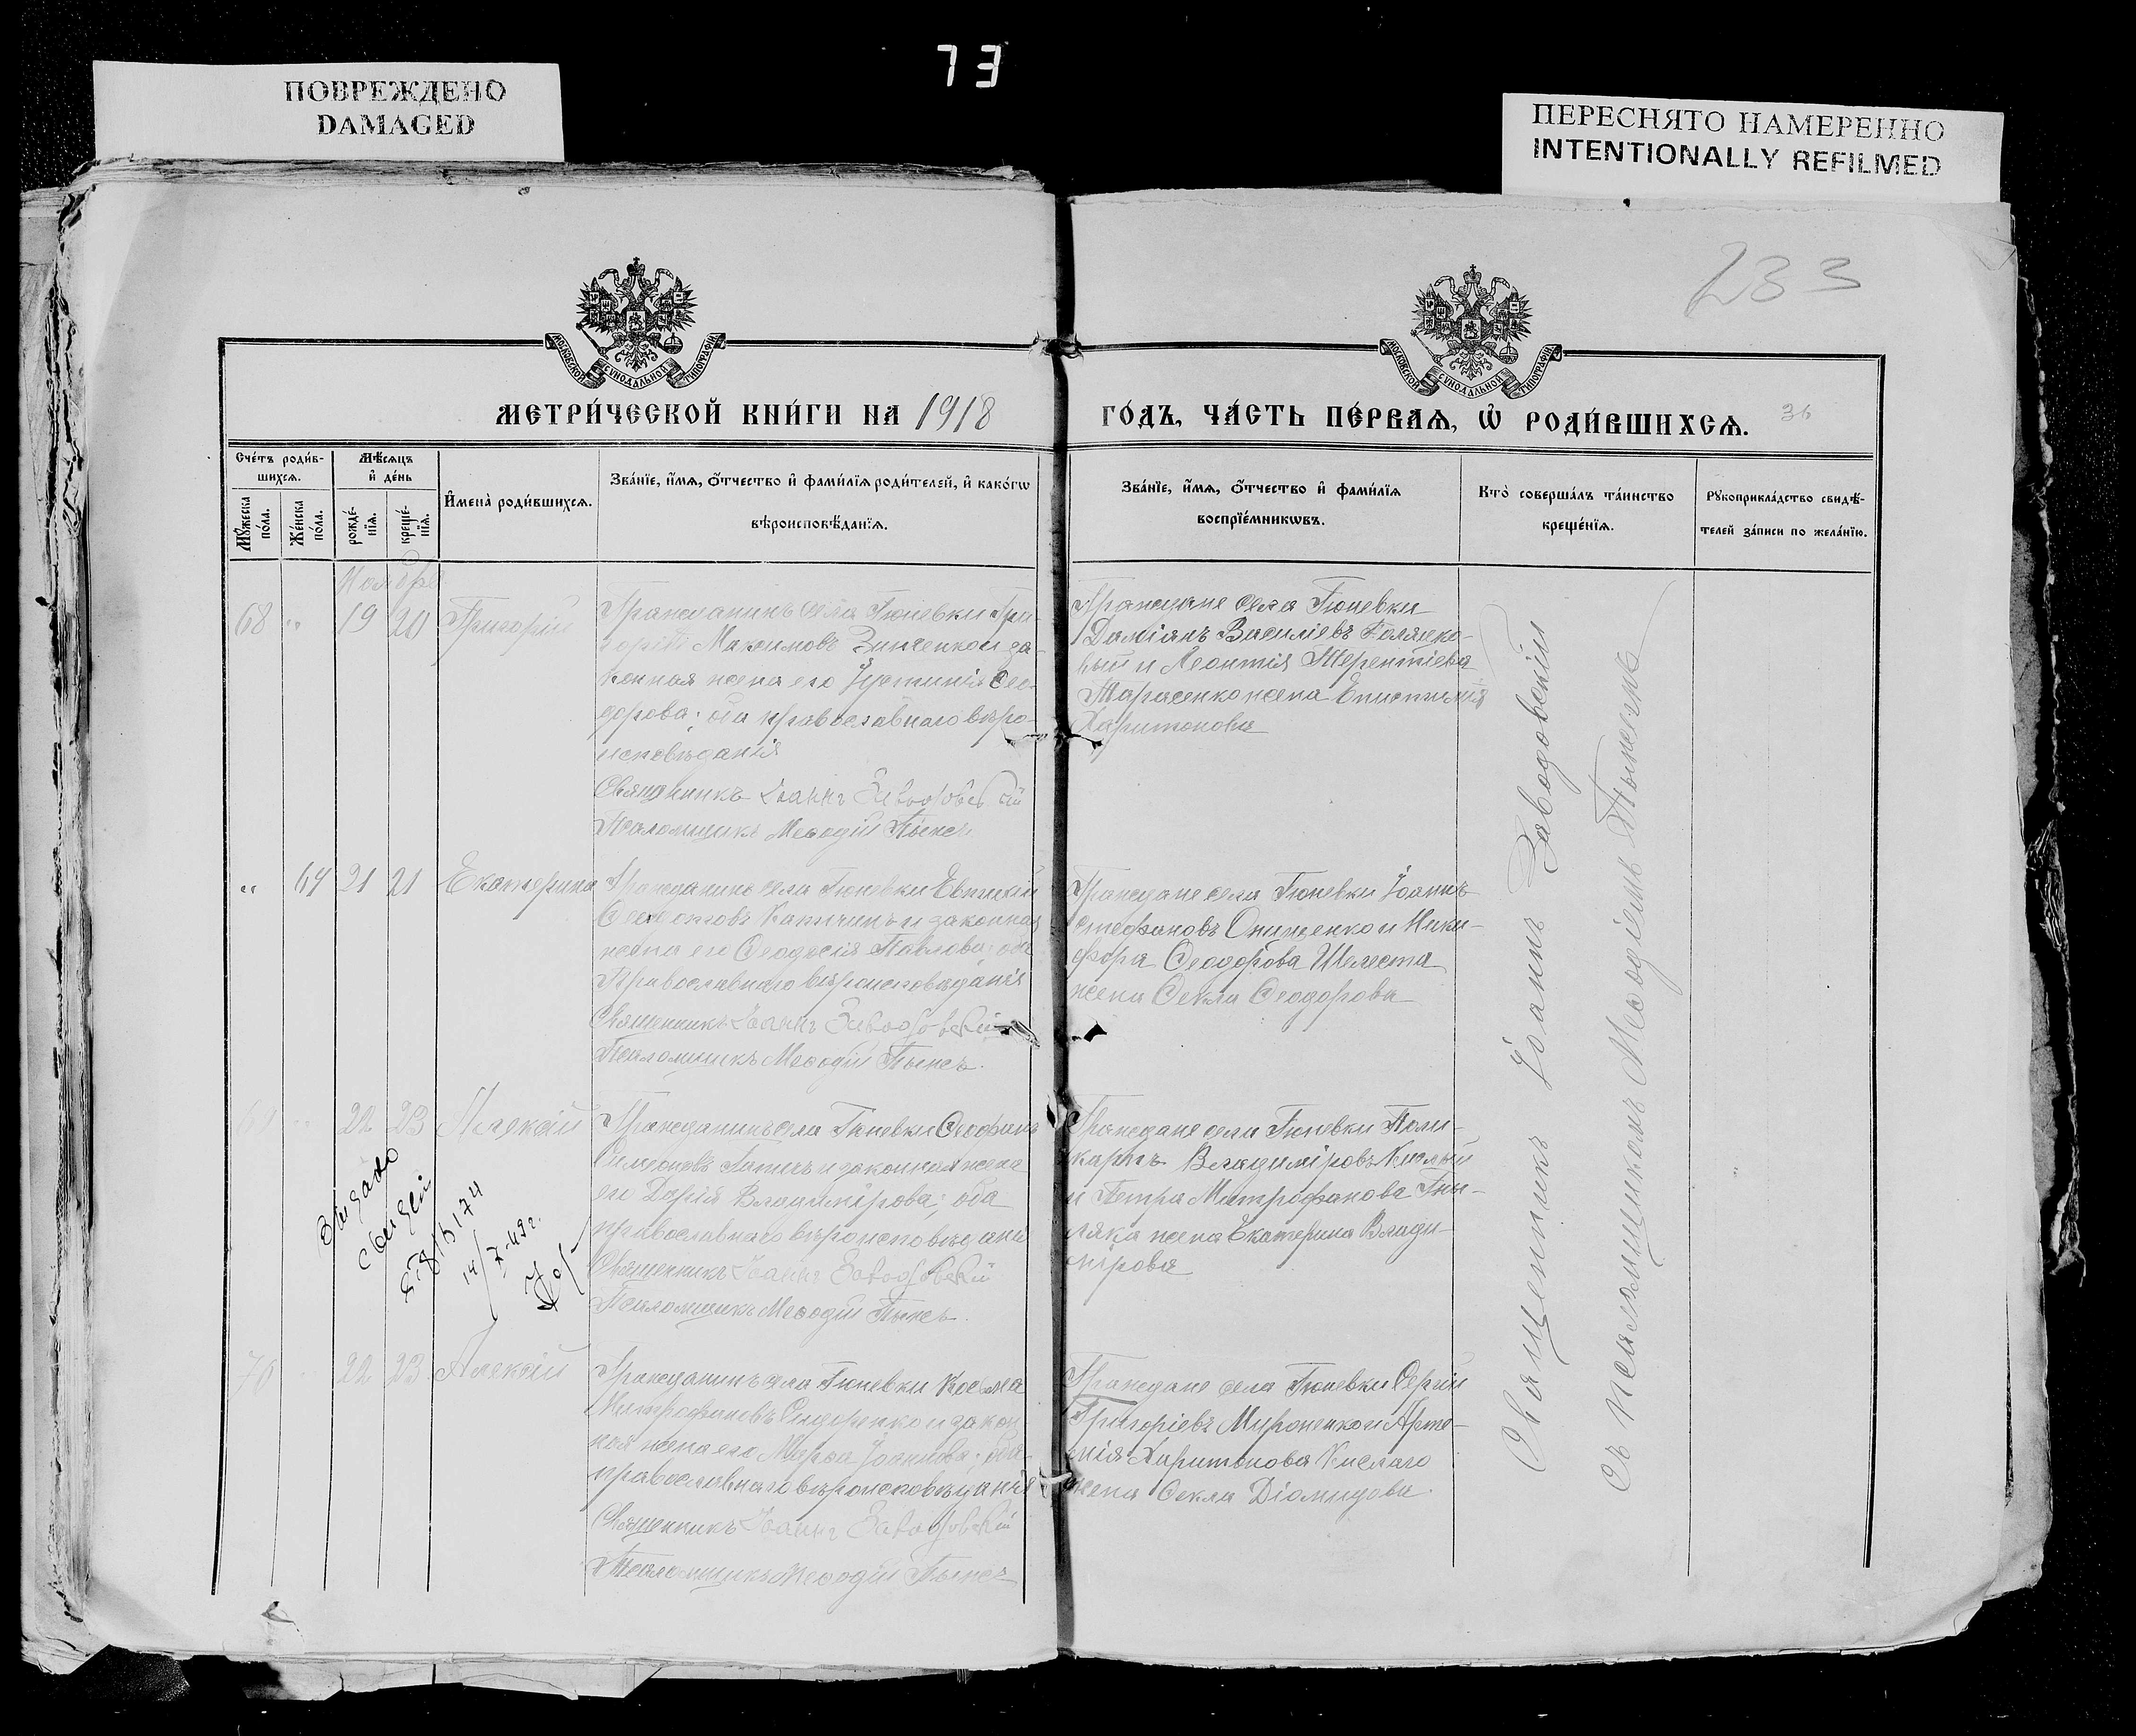 73
ПОВРЕЖДЕНО
DAMAGED
ПЕРЕСНЯТО НАМЕРЕННО
INTENTIONALLY REFILMED
233
МОСКОВСКОЙ СѴНОДАЛЬНОЙ ТИПОГРАФІИ
МОСКОВСКОЙ СѴНОДАЛЬНОЙ ТИПОГРАФІИ
МЕТРИ́ЧЕСКОЙ КНИ́ГИ НА 1918
ГО́ДЪ, ЧА́СТЬ ПЕ́РВАѦ, Ѡ҆ РОДИ́ВШИХСѦ. 36
Сче́тъ роди́в-
шихсѧ.
Мѣ́сѧцъ
и҆ де́нь
Мꙋ́жеска по́ла.
Же́нска по́ла.
рожде́-нїѧ.
креще́-нїѧ.
И҆мена̀ роди́вшихсѧ.
Зва́нїе, и҆́мѧ, ѻ҆́тчество и҆ фами́лїѧ роди́телей, и҆ како́гѡ
вѣроисповѣ́данїѧ.
Зва́нїе, и҆́мѧ, ѻ҆́тчество и҆ фами́лїѧ
воспрїе́мникѡвъ.
Кто̀ соверша́лъ та́инство
креще́нїѧ.
Рꙋкоприкла́дство свидѣ́-
телей за́писи по жела́нїю.
Ноябрь
68 " 19 20 Григорій
Гражданинъ села Гюневки Гри-
горій Максимовъ Зинченко и за-
конная жена его Іустинія Ѳео-
дорова; оба православнаго вѣро-
исповѣданія
Священникъ Іоаннъ Заводовскій
Псаломщикъ Меѳодій
Граждане села Гюневки
Даміанъ Василіевъ
и Леонтія Терентіева
Тарасенко жена Епистимія
Харитонова
" 64 21 21 Екатерина
Гражданинъ села Гюневки Евтихій
и законная
жена его Ѳеодосія Павлова; оба
Православнаго вѣроисповѣданія
Священникъ Іоаннъ Заводовскій
Псаломщикъ Меѳодій
Граждане села Гюневки Іоаннъ
Стефановъ Онищенко и Ники-
фора Ѳеодорова Шелеста
жена Ѳекла Ѳеодорова
69 " 22 23 Алексій
Гражданинъ села Гюневки Ѳеофанъ
Симеоновъ и законная жена
его Дарія Владимірова; оба
православнаго вѣроисповѣданія
Священникъ Іоаннъ Заводовскій
Псаломщикъ Меѳодій
Граждане села Гюневки Поли-
карпъ Владиміровъ Кислый
и Петра Митрофанова Гны-
ляка жена Екатерина Влади-
мірова
70 " 22 23 Алексій
Гражданинъ села Гюневки Косма
Митрофановъ Сидоренко и закон
ная жена его Марѳа Іоаннова; оба
православнаго вѣроисповѣданія
Священникъ Іоаннъ Заводовскій
Псаломщикъ Меѳодій
Граждане села Гюневки Сергій
Григоріевъ Мироненко и Арте-
мія Харитонова Кислаго
жена Ѳекла Діомидова.
Священникъ Іоаннъ Заводовскій
съ псаломщикомъ Меѳодіемъ